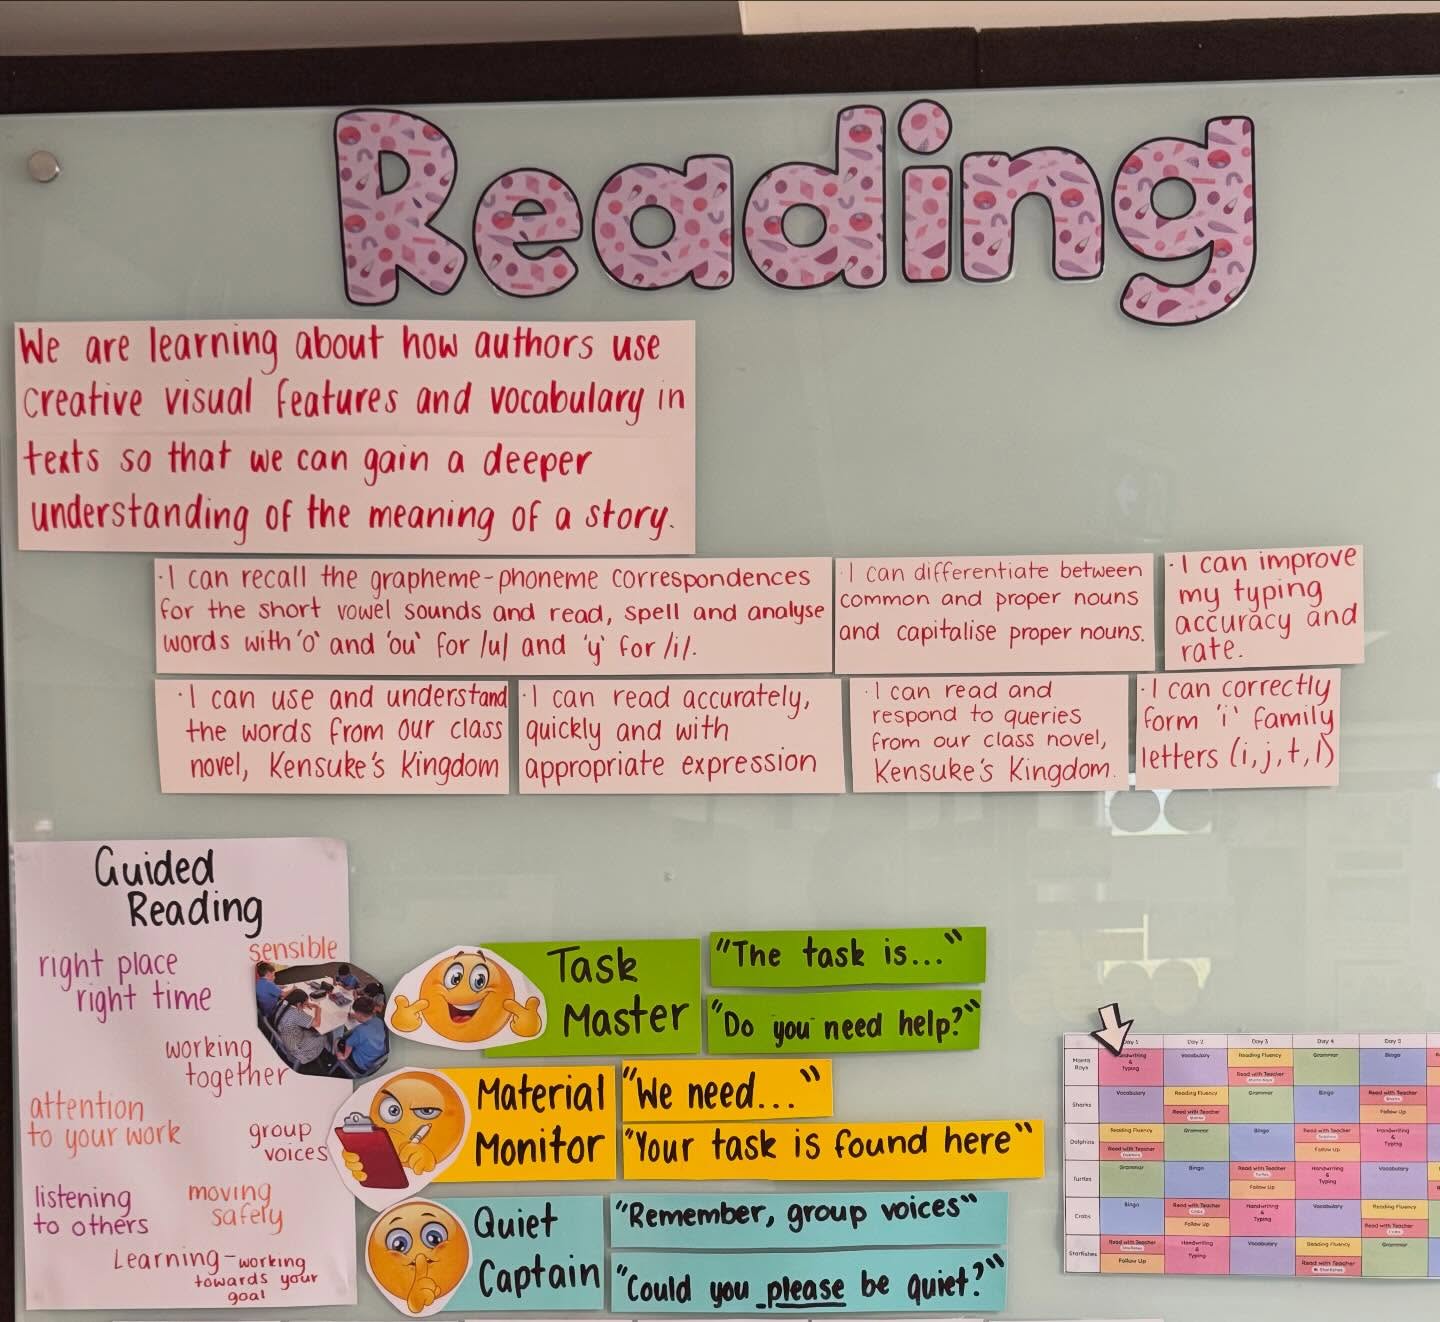 Reading
We are learning about how authors use
creative visual features and vocabulary in
texts so that we can gain a deeper
understanding of the meaning of a story.
·I can recall the grapheme-phoneme correspondences
for the short vowel sounds and read, spell and analyse
words with 'o' and 'ou' for /u/ and 'y' for /i/.
·I can differentiate between
common and proper nouns
and capitalise proper nouns.
·I can improve
my typing
accuracy and
rate.
·I can use and understand
the words from our class
novel, Kensuke's Kingdom
·I can read accurately,
quickly and with
appropriate expression
·I can read and
respond to queries
from our class novel,
Kensuke's Kingdom.
·I can correctly
form 'i' family
letters (i, j, t, l)
Guided
Reading
sensible
right place
right time
working
together
attention
to your work
group
voices
listening
to others
moving
safely
Learning - working
towards your
goal
Task
Master
"The task is..."
"Do you need help?"
Material
Monitor
"We need..."
"Your task is found here"
Quiet
Captain
"Remember, group voices"
"Could you please be quiet?"
Day 1
Day 2
Day 3
Day 4
Day 5
Manta
Rays
Handwriting
&
Typing
Vocabulary
Reading Fluency
Read with Teacher
Grammar
Bingo
Sharks
Vocabulary
Reading Fluency
Read with Teacher
Grammar
Bingo
Read with Teacher
Follow Up
Dolphins
Reading Fluency
Read with Teacher
Grammar
Bingo
Read with Teacher
Follow Up
Handwriting
&
Typing
Turtles
Grammar
Bingo
Read with Teacher
Follow Up
Handwriting
&
Typing
Vocabulary
Crabs
Bingo
Read with Teacher
Follow Up
Handwriting
&
Typing
Vocabulary
Reading Fluency
Read with Teacher
Starfishes
Read with Teacher
Follow Up
Handwriting
&
Typing
Vocabulary
Reading Fluency
Read with Teacher
Grammar